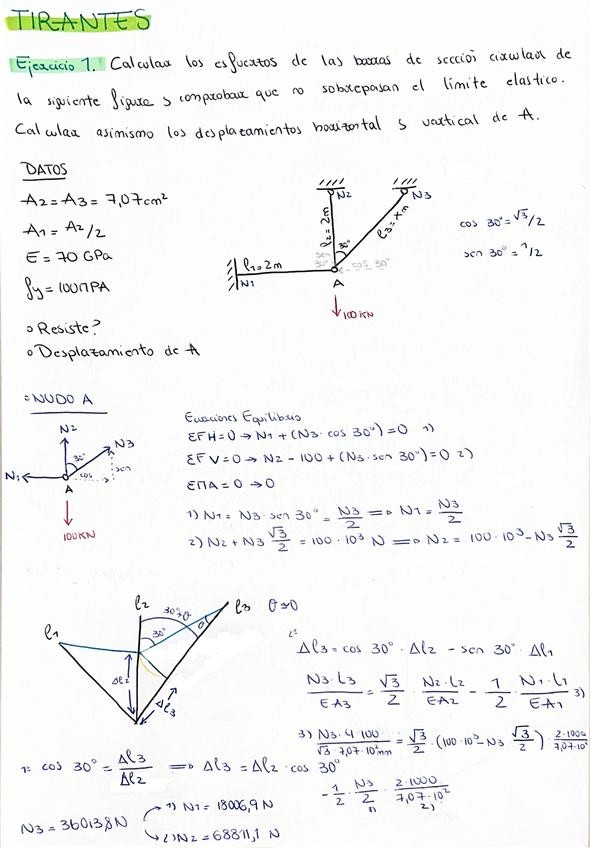 TIRANTES
Ejercicio 1. Calcular los esfuerzos de las barras de sección circular de
la siguiente figura y comprobar que no sobrepasan el límite elastico.
Calcular asimismo los desplazamientos horizontal y vertical de A.
DATOS
A2 = A3 = 7,07 cm²
A1 = A2/2
E = 70 GPa
fy = 100 MPA
o Resiste?
o Desplazamiento de A
N2
N3
l2 = 2m
l3 = x m
30°
sen 30°
l1 = 2m
cos 30°
N1
A
100KN
cos 30° = √3/2
sen 30° = 1/2
o NUDO A
N2
N3
30°
N1
cos
sen
A
100KN
Ecuaciones Equilibrio
ΣFH=0 → N1 + (N3 · cos 30°) = 0 1)
ΣFV=0 → N2 - 100 + (N3 · sen 30°) = 0 2)
ΣMA=0 → 0
1) N1 = N3 · sen 30° = N3/2 ⟹ N1 = N3/2
2) N2 + N3 √3/2 = 100 · 10³ N ⟹ N2 = 100 · 10³ - N3 √3/2
l1
l2
l3
30°+θ
30°
θ
θ≈0
Δl2
Δl3
2=
Δl3 = cos 30° · Δl2 - sen 30° · Δl1
N3 · L3 / EA3 = √3/2 · N2 · L2 / EA2 - 1/2 · N1 · L1 / EA1 3)
3) N3 · 4 · 100 / √3 · 7,07 · 10² mm = √3/2 · (100 · 10³ - N3 √3/2) · 2 · 1000 / 7,07 · 10²
- 1/2 · N3/2 · 2 · 1000 / 7,07 · 10²
1)
2)
1= cos 30° = Δl3/Δl2 ⟹ Δl3 = Δl2 · cos 30°
N3 = 36013,8 N
1) N1 = 18006,9 N
2) N2 = 68811,1 N